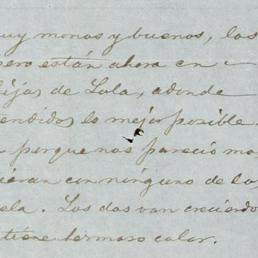 uy monos y buenos, los
pero están ahora en
hijas de Lola, adonde
endidos lo mejor posible.
porque nos pareció ma
ieran con ninguno de los
ela. Los dos van creciendo
tiene hermoso color.